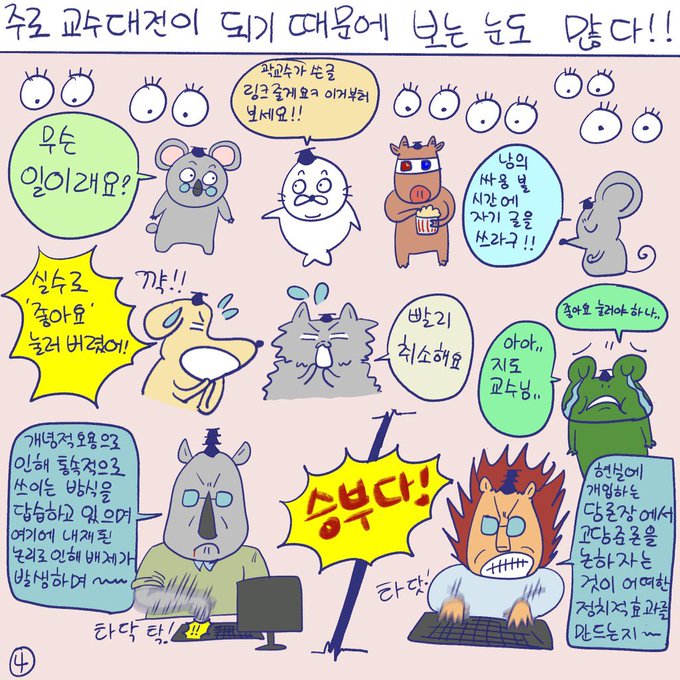 주로 교수대전이 되기 때문에 보는 눈도 많다!!
무슨
일이래요?
곽교수가 쓴글
링크줄게요ㅋ 이거부터
보세요!!
남의
싸움 볼
시간에
자기 글을
쓰라구!!
실수로
'좋아요'
눌러 버렸어!
꺅!!
빨리
취소해요
좋아요 눌러야 하나..
아아..
지도
교수님..
개념적오용으로
인해 통속적으로
쓰이는 방식을
답습하고 있으며
여기에 내재된
논리로 인해 배제가
발생하며~~~
타닥 탁!
!!
승부다!
타닷!
현실에
개입하는
담론장에서
고담준론을
논하자는
것이 어떠한
정치적효과를
만드는지~~
4